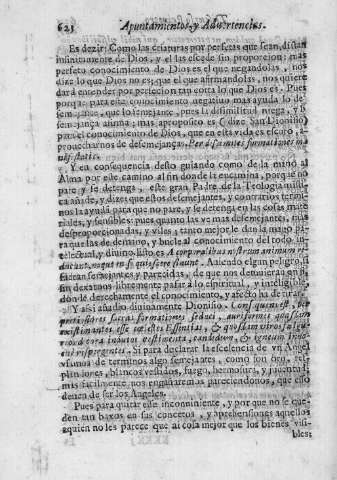 623 Apuntamientos, y Advertencias.
Es dezir: Como las criaturas por perfetas que sean, distan
infinitamente de Dios, y el las escede sin proporcion; mas
perfeto conocimiento de Dios es el que negandolas, nos
dize lo que Dios no es, que el que afirmandolas, nos quiere
dará entender por perfecion tan corta lo que Dios es. Pues
porque para este conocimiento negativo mas ayuda lo de
semejante, que lo semejante, pues la disimilitud niega, y la
semejança afirma; mas aproposito es (dize San Dionisio)
para el conocimiento de Dios, que en esta vida es escuro, a-
prouecharnos de desemejanças. Per dissimiles formationes ma
nifestatio.
Y en consequencia desto guiando como de la mano al
Alma por este camino al fin donde la encamina, porque no
pare, y se detenga, este gran Padre de la Teologia mistica
ca añade, y dize: que estos desemejantes, y contrarios termi-
nos la ayuda para que no pare, y se detenga en las cosas mate
riales, y sensibles: pues quanto las ve mas desemejantes, mas
desproporcionadas, y viles; tanto mejor le dan la mano pa
ra que las de de mano, y buele al conocimiento del todo in-
telectual, y diuino. Esto es A corporalibus nostrum animum re
ducant, neque in se quiescere sinunt. Auiendo algun peligro, si
fueran semejantes, y parecidas, de que nos detuuieran en si,
sin dexarnos libremente pasar a lo espiritual, y inteligible,
donde derechamente el conocimiento, y afecto ha de tirar.
Y assi añadio diuinamente Dionisio. Consequens est, per
pretiosiores sacras formationes seduci, auriformes quasdam
existimantes esse coelestes Essentias, & quosdam viros fulgu
reos decora indutos vestimenta, candidum, & igneum inno
cui respergentes. Si para declarar la escelencia de vn Angel
vsamos de terminos algo semejantes, como son oro, res-
plandores, blancos vestidos, fuego, hermosura, y juuentud,
mas facilmente nos engañaremos pareciendonos, que esso
deuen de ser los Angeles.
Pues para quitar este inconuiniente, y por que no se que-
den tan baxos en sus concetos, y aprehensiones aquellos
aquien no les parece que ai cosa mejor que los bienes visi-
bles: